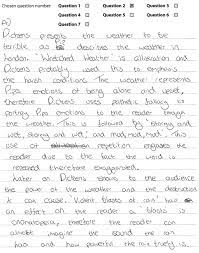 Chosen question number: Question 1 Question 2 Question 3
Question 4 Question 5 Question 6
Question 7
A)
Dickens presents the weather to be
terrible as he describes the weather in
london. 'Wretched Weather' is alliteration and
Dickens probably used this to emphasis
the harsh conditions. The weather represents
Pips emotions of being alone and upset,
therefore Dickens uses pathetic fallacy to
portray Pips emotions to the reader through
the weather. This is followed by 'stormy and
wet, stormy and wet; and mud, mud, mud'. This
use of repetition engages the
reader due to the fact the word is
repeated therefore exaggerated.
Later on Dickens shows to the audience
the power of the weather and the destruction
it can cause. 'Violent blasts of rain' has
an effect on the reader as blasts is
onomatopoeia, therefore the reader can
almost imagine the sound the rain
has and how powerful the rain truely is.